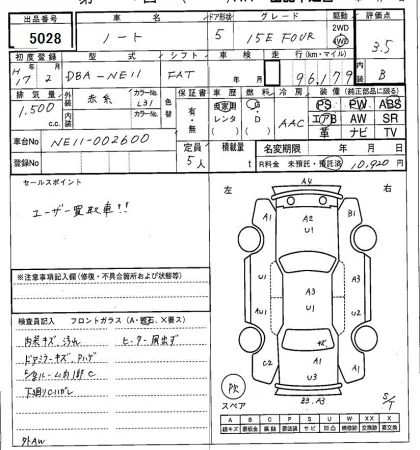 出品番号 車名 ドア形状 グレード 駆動 評価点
5028 ノート 5 15E FOUR 2WD 4WD 3.5
初度登録 型式 シフト 車検 走行(km・マイル) 内装
H17 2 DBA-NE11 FAT 年 月 96,179 B
排気量 外装 カラーNo. 色替 保証書 車歴 燃料 冷房 装備(純正部品に限る)
1,500 c.c. 赤系 L31 有・無 自家用 レンタ G・D AAC PS PW ABS
内装 カラーNo. エアB AW SR
革 ナビ TV
車台No NE11-002600 定員 積載量 名変期限 年 月 日
登録No 5人 t R料金 未預託・預託済 10,920円
セールスポイント 左 右
ユーザー買取車!!
A4
A1 A2 U1 B1
U1 A3 U1 U1
AU1 A1
C2 A1 U3 U2
B3.A3
※注意事項記入欄(修復・不具合箇所および状態等)
検査員記入 フロントガラス(A・飛石、X要ス)
内装キズ、汚れ ヒーター風出ず
ドアミラーキズ、ハゲ
下廻りCハゲレ
外AW
スペア
S/T
A B C P S U W X XX
線キズ 要板金 腐蝕 要塗装 サビ 凹凸 補修跡 要交換 交換